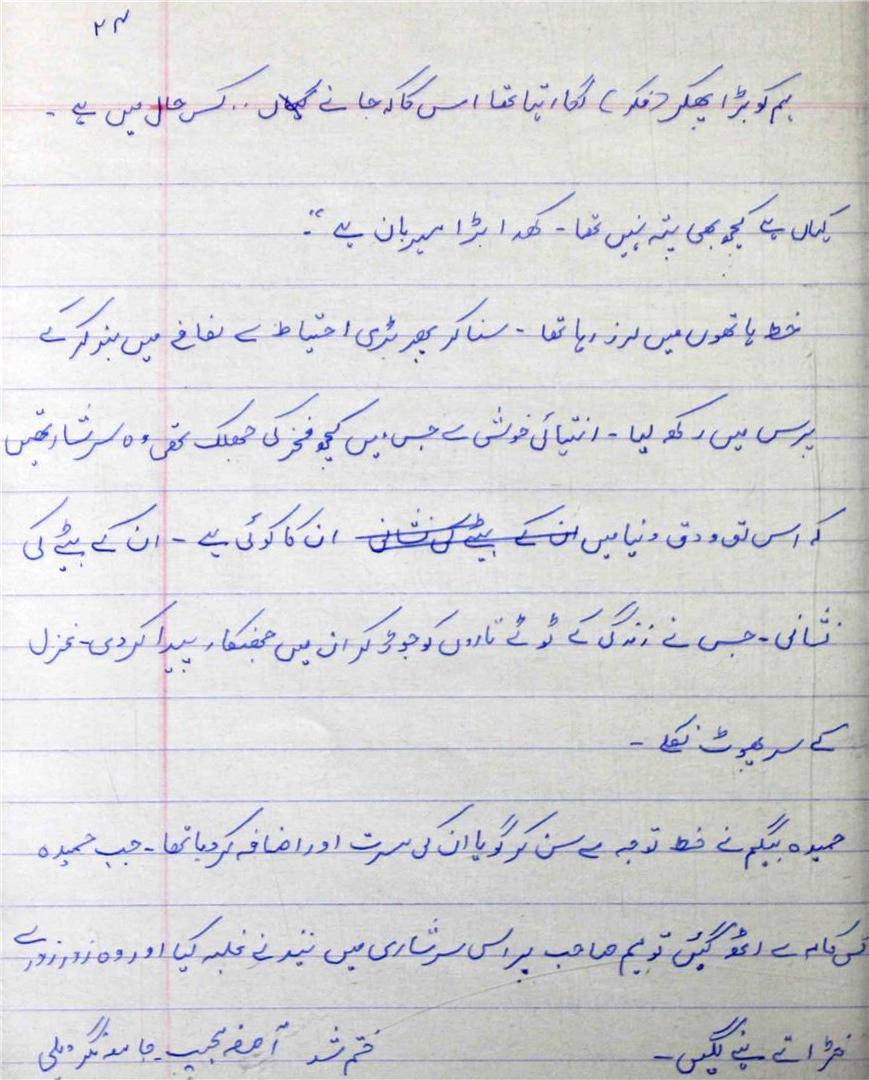 ۲۴
ہم کو بڑا پھکر (فکر) لگا رہتا تھا اس کا کہ جانے .. کس حال میں ہے ۔
کہاں ہے کچھ بھی پتہ نہیں تھا ۔ کھدا بڑا مہربان ہے“۔
خط ہاتھوں میں لرز رہا تھا ۔ سنا کر پھر بڑی احتیاط سے لفافے میں بند کر کے
پرس میں رکھ لیا ۔ انتہائی خوشی سے جس میں کچھ فخر کی جھلک تھی وہ سرشار تھیں
کہ اس لق و دق دنیا میں ان کے بیٹے کی نشانی ان کا کوئی ہے ۔ ان کے بیٹے کی
نشانی ۔ جس نے زندگی کے ٹوٹے تاروں کو جوڑ کر ان میں جھنکار پیدا کر دی ۔ غزل
کے سر پھوٹ نکلے ۔
حمیدہ بیگم نے خط توجہ سے سن کر گویا ان کی مسرت اور اضافہ کر دیا تھا ۔ جب حمیدہ
کسی کام سے اٹھ گیئں تو میم صاحب پر اس سرشاری میں نیند نے غلبہ کیا اور وہ زور زور سے
خراٹے لینے لگیں ۔
ختم شد آصفہ مجیب ۔ جامعہ نگر دہلی